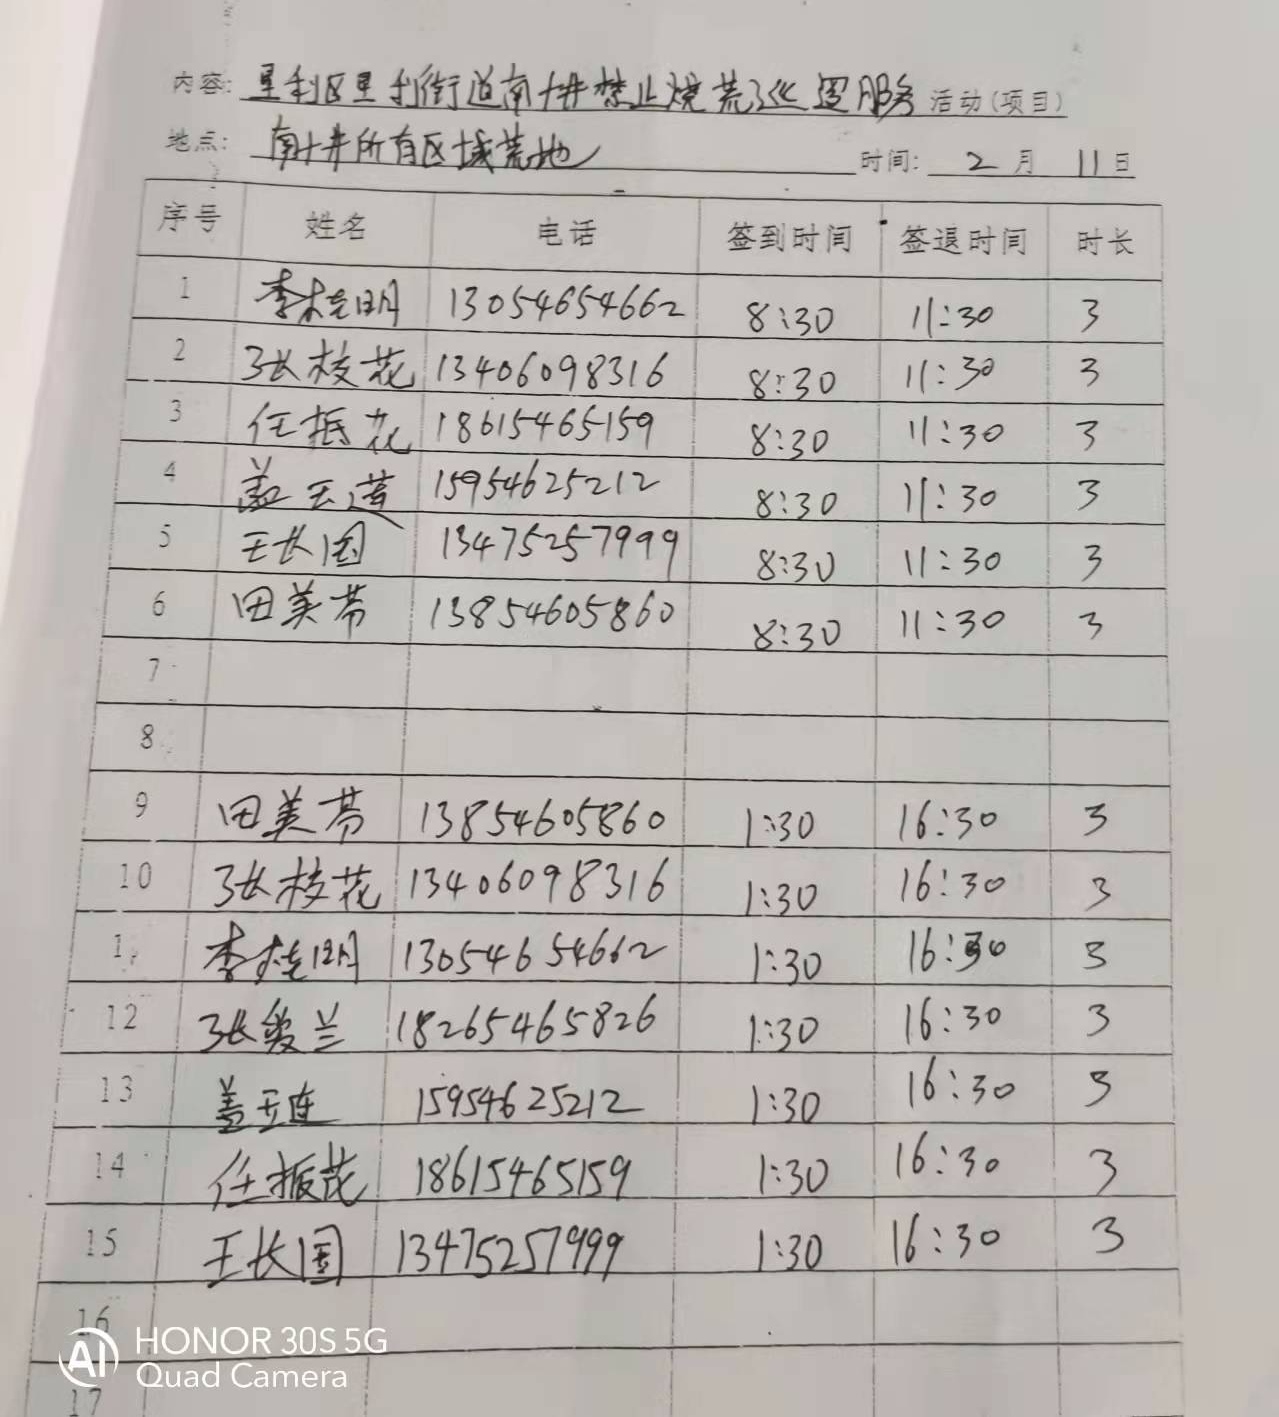 内容: 垦利区垦利街道南十井禁止烧荒巡逻服务 活动(项目)
地点: 南十井所有区域荒地 时间: 2月 11日
序号 姓名 电话 签到时间 签退时间 时长
1 李桂明 13054654662 8:30 11:30 3
2 张枝花 13406098316 8:30 11:30 3
3 任振花 18615465159 8:30 11:30 3
4 盖玉莲 15954625212 8:30 11:30 3
5 王长国 13475257999 8:30 11:30 3
6 田美芾 13854605860 8:30 11:30 3
7
8
9 田美芾 13854605860 1:30 16:30 3
10 张枝花 13406098316 1:30 16:30 3
11 李桂明 13054654662 1:30 16:30 3
12 张爱兰 18265465826 1:30 16:30 3
13 盖玉连 15954625212 1:30 16:30 3
14 任振花 18615465159 1:30 16:30 3
15 王长国 13475257999 1:30 16:30 3
16
17
AI HONOR 30S 5G
Quad Camera